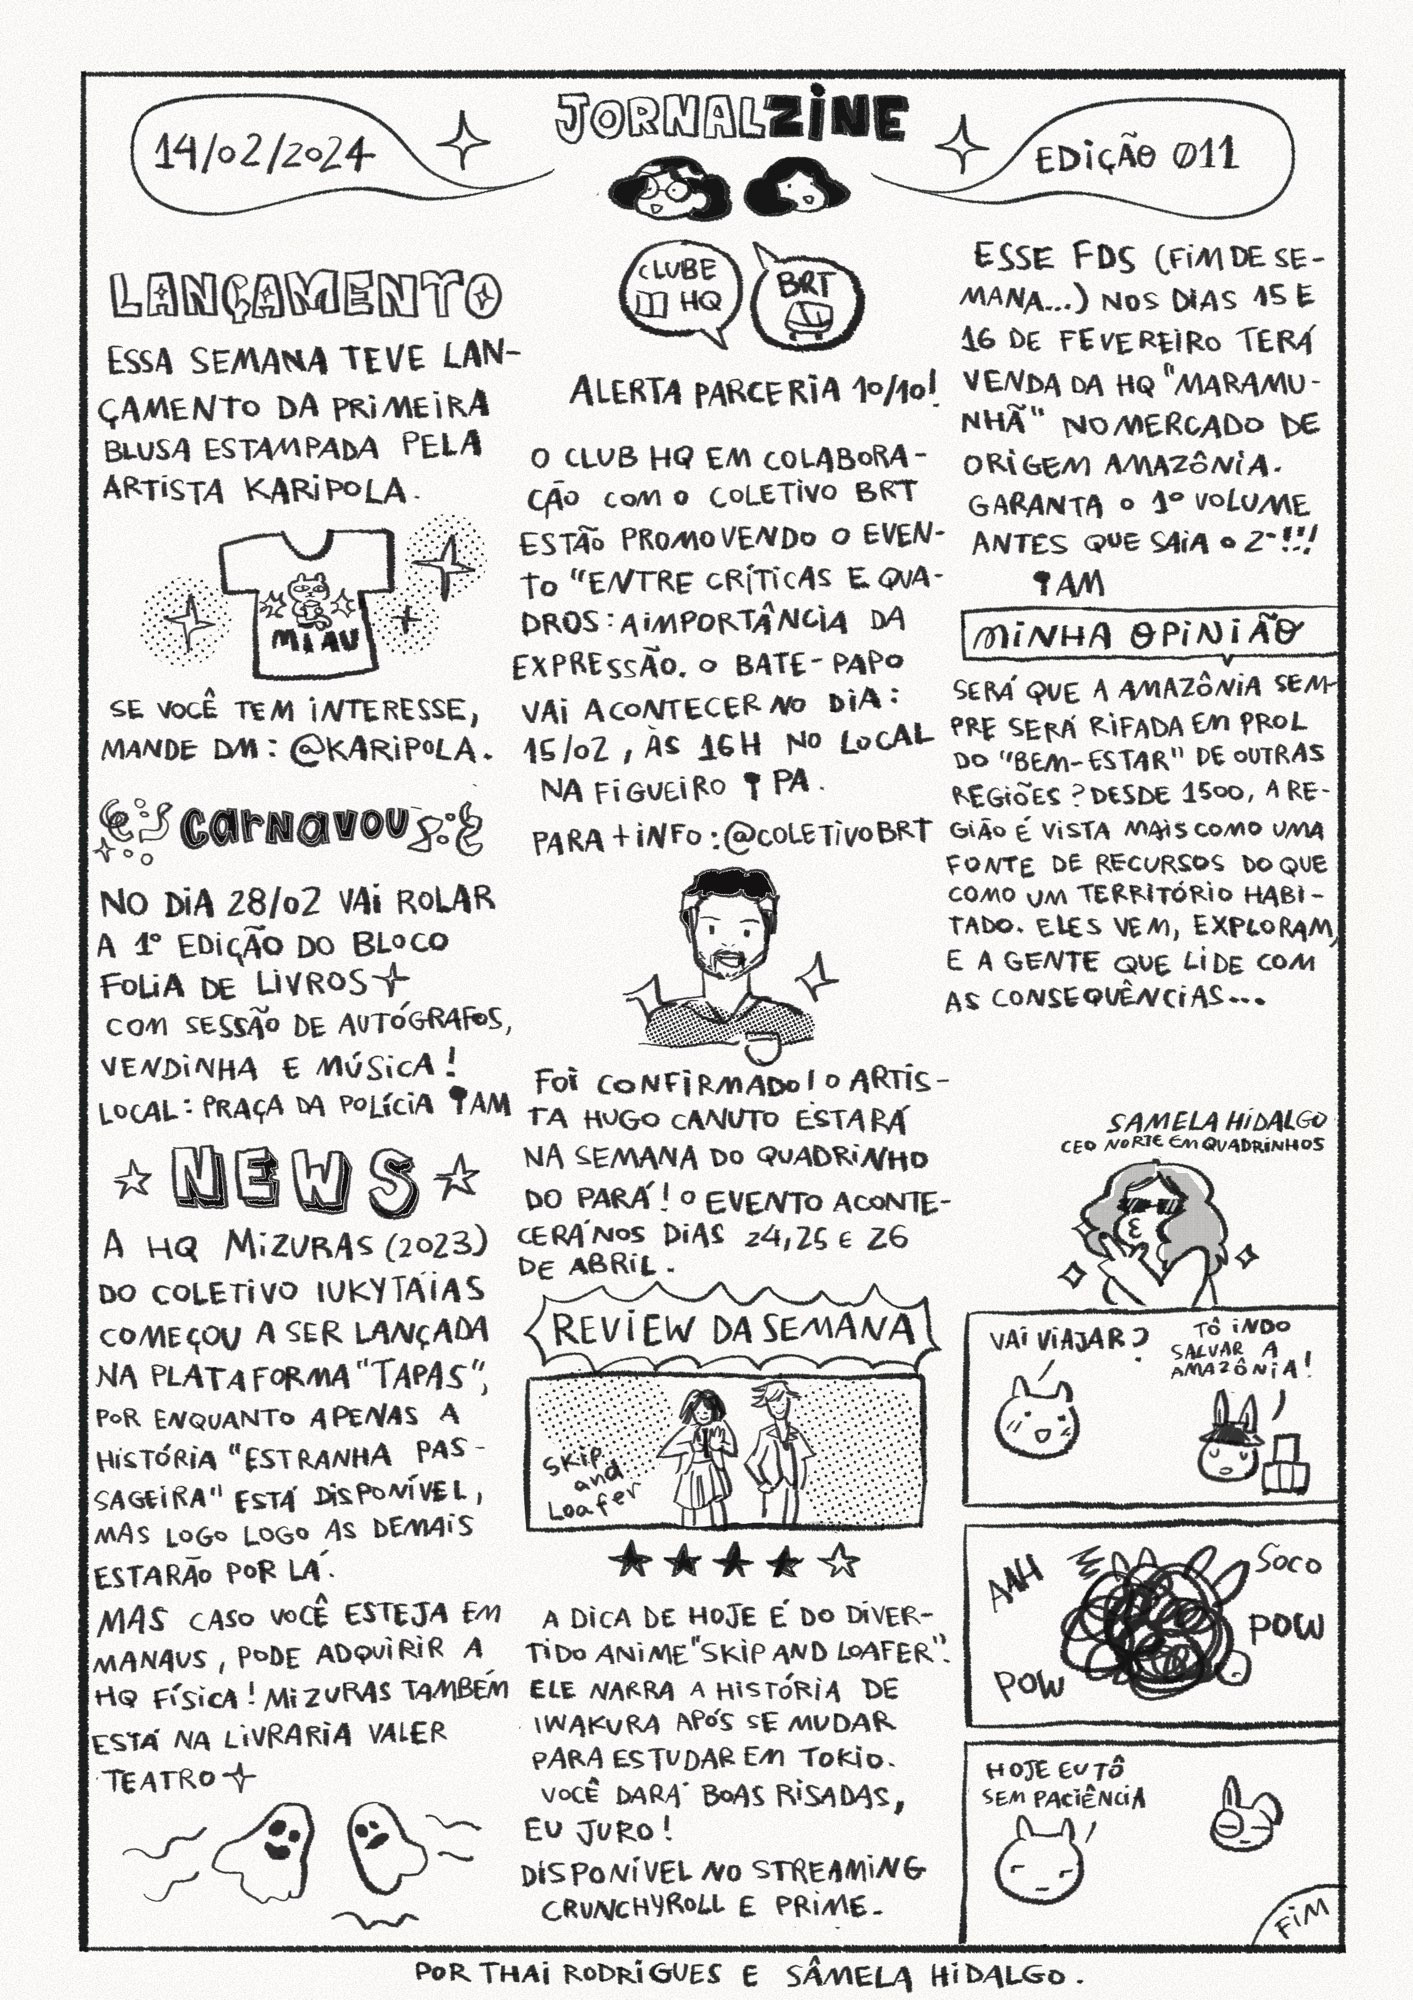 JORNALZINE
14/02/2024
EDIÇÃO 011
LANÇAMENTO
ESSA SEMANA TEVE LAN-
ÇAMENTO DA PRIMEIRA
BLUSA ESTAMPADA PELA
ARTISTA KARIPOLA.
MIAU
SE VOCÊ TEM INTERESSE,
MANDE DM: @KARIPOLA.
CARNAVOU
NO DIA 28/02 VAI ROLAR
A 1º EDIÇÃO DO BLOCO
FOLIA DE LIVROS
COM SESSÃO DE AUTÓGRAFOS,
VENDINHA E MÚSICA!
LOCAL: PRAÇA DA POLÍCIA AM
NEWS
A HQ MIZURAS (2023)
DO COLETIVO IUKYTAIAS
COMEÇOU A SER LANÇADA
NA PLATAFORMA "TAPAS",
POR ENQUANTO APENAS A
HISTÓRIA "ESTRANHA PAS-
SAGEIRA" ESTÁ DISPONÍVEL,
MAS LOGO LOGO AS DEMAIS
ESTARÃO POR LÁ.
MAS CASO VOCÊ ESTEJA EM
MANAUS, PODE ADQUIRIR A
HQ FÍSICA! MIZURAS TAMBÉM
ESTÁ NA LIVRARIA VALER
TEATRO
CLUBE
HQ
BRT
ALERTA PARCERIA 10/10!
O CLUB HQ EM COLABORA-
ÇÃO COM O COLETIVO BRT
ESTÃO PROMOVENDO O EVEN-
TO "ENTRE CRÍTICAS E QUA-
DROS: A IMPORTÂNCIA DA
EXPRESSÃO. O BATE-PAPO
VAI ACONTECER NO DIA:
15/02, ÀS 16H NO LOCAL
NA FIGUEIRO PA.
PARA + INFO: @COLETIVOBRT
FOI CONFIRMADO! O ARTIS-
TA HUGO CANUTO ESTARÁ
NA SEMANA DO QUADRINHO
DO PARÁ! O EVENTO ACONTE-
CERÁ NOS DIAS 24, 25 E 26
DE ABRIL.
REVIEW DA SEMANA
SKIP
and
Loafer
A DICA DE HOJE É DO DIVER-
TIDO ANIME "SKIP AND LOAFER".
ELE NARRA A HISTÓRIA DE
IWAKURA APÓS SE MUDAR
PARA ESTUDAR EM TOKIO.
VOCÊ DARÁ BOAS RISADAS,
EU JURO!
DISPONÍVEL NO STREAMING
CRUNCHYROLL E PRIME.
ESSE FDS (FIM DE SE-
MANA...) NOS DIAS 15 E
16 DE FEVEREIRO TERÁ
VENDA DA HQ "MARAMU-
NHÃ" NO MERCADO DE
ORIGEM AMAZÔNIA.
GARANTA O 1º VOLUME
ANTES QUE SAIA O 2º!!!
AM
MINHA OPINIÃO
SERÁ QUE A AMAZÔNIA SEM-
PRE SERÁ RIFADA EM PROL
DO "BEM-ESTAR" DE OUTRAS
REGIÕES? DESDE 1500, A RE-
GIÃO É VISTA MAIS COMO UMA
FONTE DE RECURSOS DO QUE
COMO UM TERRITÓRIO HABI-
TADO. ELES VEM, EXPLORAM,
E A GENTE QUE LIDE COM
AS CONSEQUÊNCIAS...
SAMELA HIDALGO
CEO NORTE EM QUADRINHOS
VAI VIAJAR?
TÔ INDO
SALVAR A
AMAZÔNIA!
AAH
SOCO
POW
POW
HOJE EU TÔ
SEM PACIÊNCIA
FIM
POR THAI RODRIGUES E SÂMELA HIDALGO.